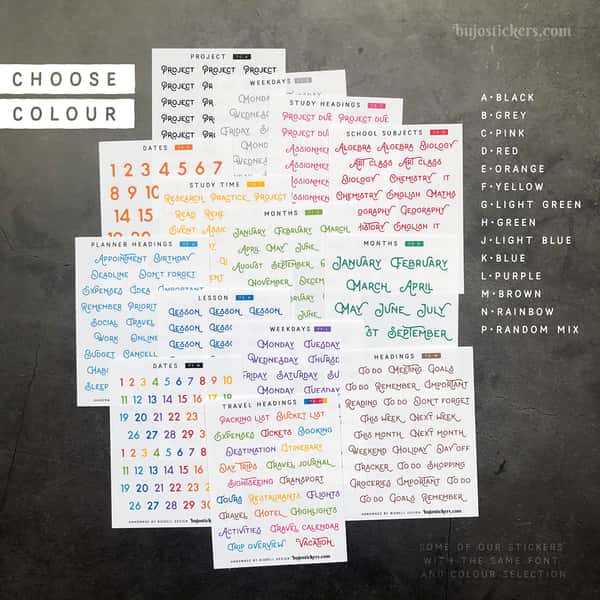 bujostickers.com
CHOOSE
COLOUR
A•BLACK
B•GREY
C•PINK
D•RED
E•ORANGE
F•YELLOW
G•LIGHT GREEN
H•GREEN
J•LIGHT BLUE
K•BLUE
L•PURPLE
M•BROWN
N•RAINBOW
P•RANDOM MIX
PROJECT
PROJECT PROJECT PROJECT
PROJECT
PROJECT
PROJECT
PROJECT
WEEKDAYS
MONDAY
WEDNESDAY
FRIDAY
STUDY HEADINGS
PROJECT DUE PROJECT DUE
PROJECT DUE
ASSIGNMENT
ASSIGNMENT
SCHOOL SUBJECTS
ALGEBRA ALGEBRA BIOLOGY
ART CLASS ART CLASS
BIOLOGY CHEMISTRY IT
CHEMISTRY ENGLISH MATHS
GEOGRAPHY
HISTORY ENGLISH IT
DATES
1 2 3 4 5 6 7
8 9 10
14 15
STUDY TIME
RESEARCH PRACTICE PROJECT
READ
EVENT
MONTHS
JANUARY FEBRUARY MARCH
APRIL MAY JUNE
AUGUST SEPTEMBER
MONTHS
JANUARY FEBRUARY
MARCH APRIL
MAY JUNE JULY
SEPTEMBER
PLANNER HEADINGS
APPOINTMENT BIRTHDAY
DEADLINE DON'T FORGET
EXPENSES IDEA IMPORTANT
REMEMBER
SOCIAL TRAVEL
WORK ONLINE
BUDGET
SLEEP
LESSON
LESSON LESSON LESSON
LESSON LESSON LESSON
WEEKDAYS
MONDAY TUESDAY
WEDNESDAY
FRIDAY SATURDAY
MONDAY TUESDAY
DATES
1 2 3 4 5 6 7 8 9 10
11 12 13 14 15 16 17 18
19 20 21 22 23
26 27 28 29 30
1 2 3 4 5 6 7
11 12 13 14 15 16
19 20 21 22 23
26 27 28 29 30
HANDMADE BY BIGBELL DESIGN
TRAVEL HEADINGS
PACKING LIST BUCKET LIST
EXPENSES TICKETS BOOKING
DESTINATION ITINERARY
DAY TRIPS TRAVEL JOURNAL
SIGHTSEEING TRANSPORT
TOURS RESTAURANTS FLIGHTS
TRAVEL HOTEL HIGHLIGHTS
ACTIVITIES TRAVEL CALENDAR
TRIP OVERVIEW VACATION
HANDMADE BY BIGBELL DESIGN bujostickers.com
HEADINGS
TO DO MEETING GOALS
TO DO REMEMBER IMPORTANT
READING TO DO DON'T FORGET
THIS WEEK NEXT WEEK
THIS MONTH NEXT MONTH
WEEKEND HOLIDAY DAY OFF
TRACKER TO DO SHOPPING
GROCERIES IMPORTANT TO DO
TO DO GOALS REMEMBER
HANDMADE BY BIGBELL DESIGN bujostickers.com
SOME OF OUR STICKERS
WITH THE SAME FONT
AND COLOUR SELECTION